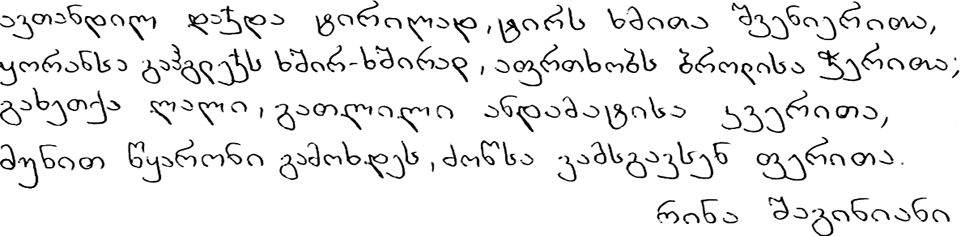 ავთანდილ დაჯდა ტირილად, ტირს ხმითა შვენიერითა,
ყორანსა გაჰგლეჯს ხშირ-ხშირად, აფრთხობს ბროლისა ჭერითა;
გახეთქა ლალი, გათლილი ანდამატისა კვერითა,
მუნით წყარონი გამოხდეს, ძოწსა ვამსგავსენ ფერითა.
რინა შაგინიანი